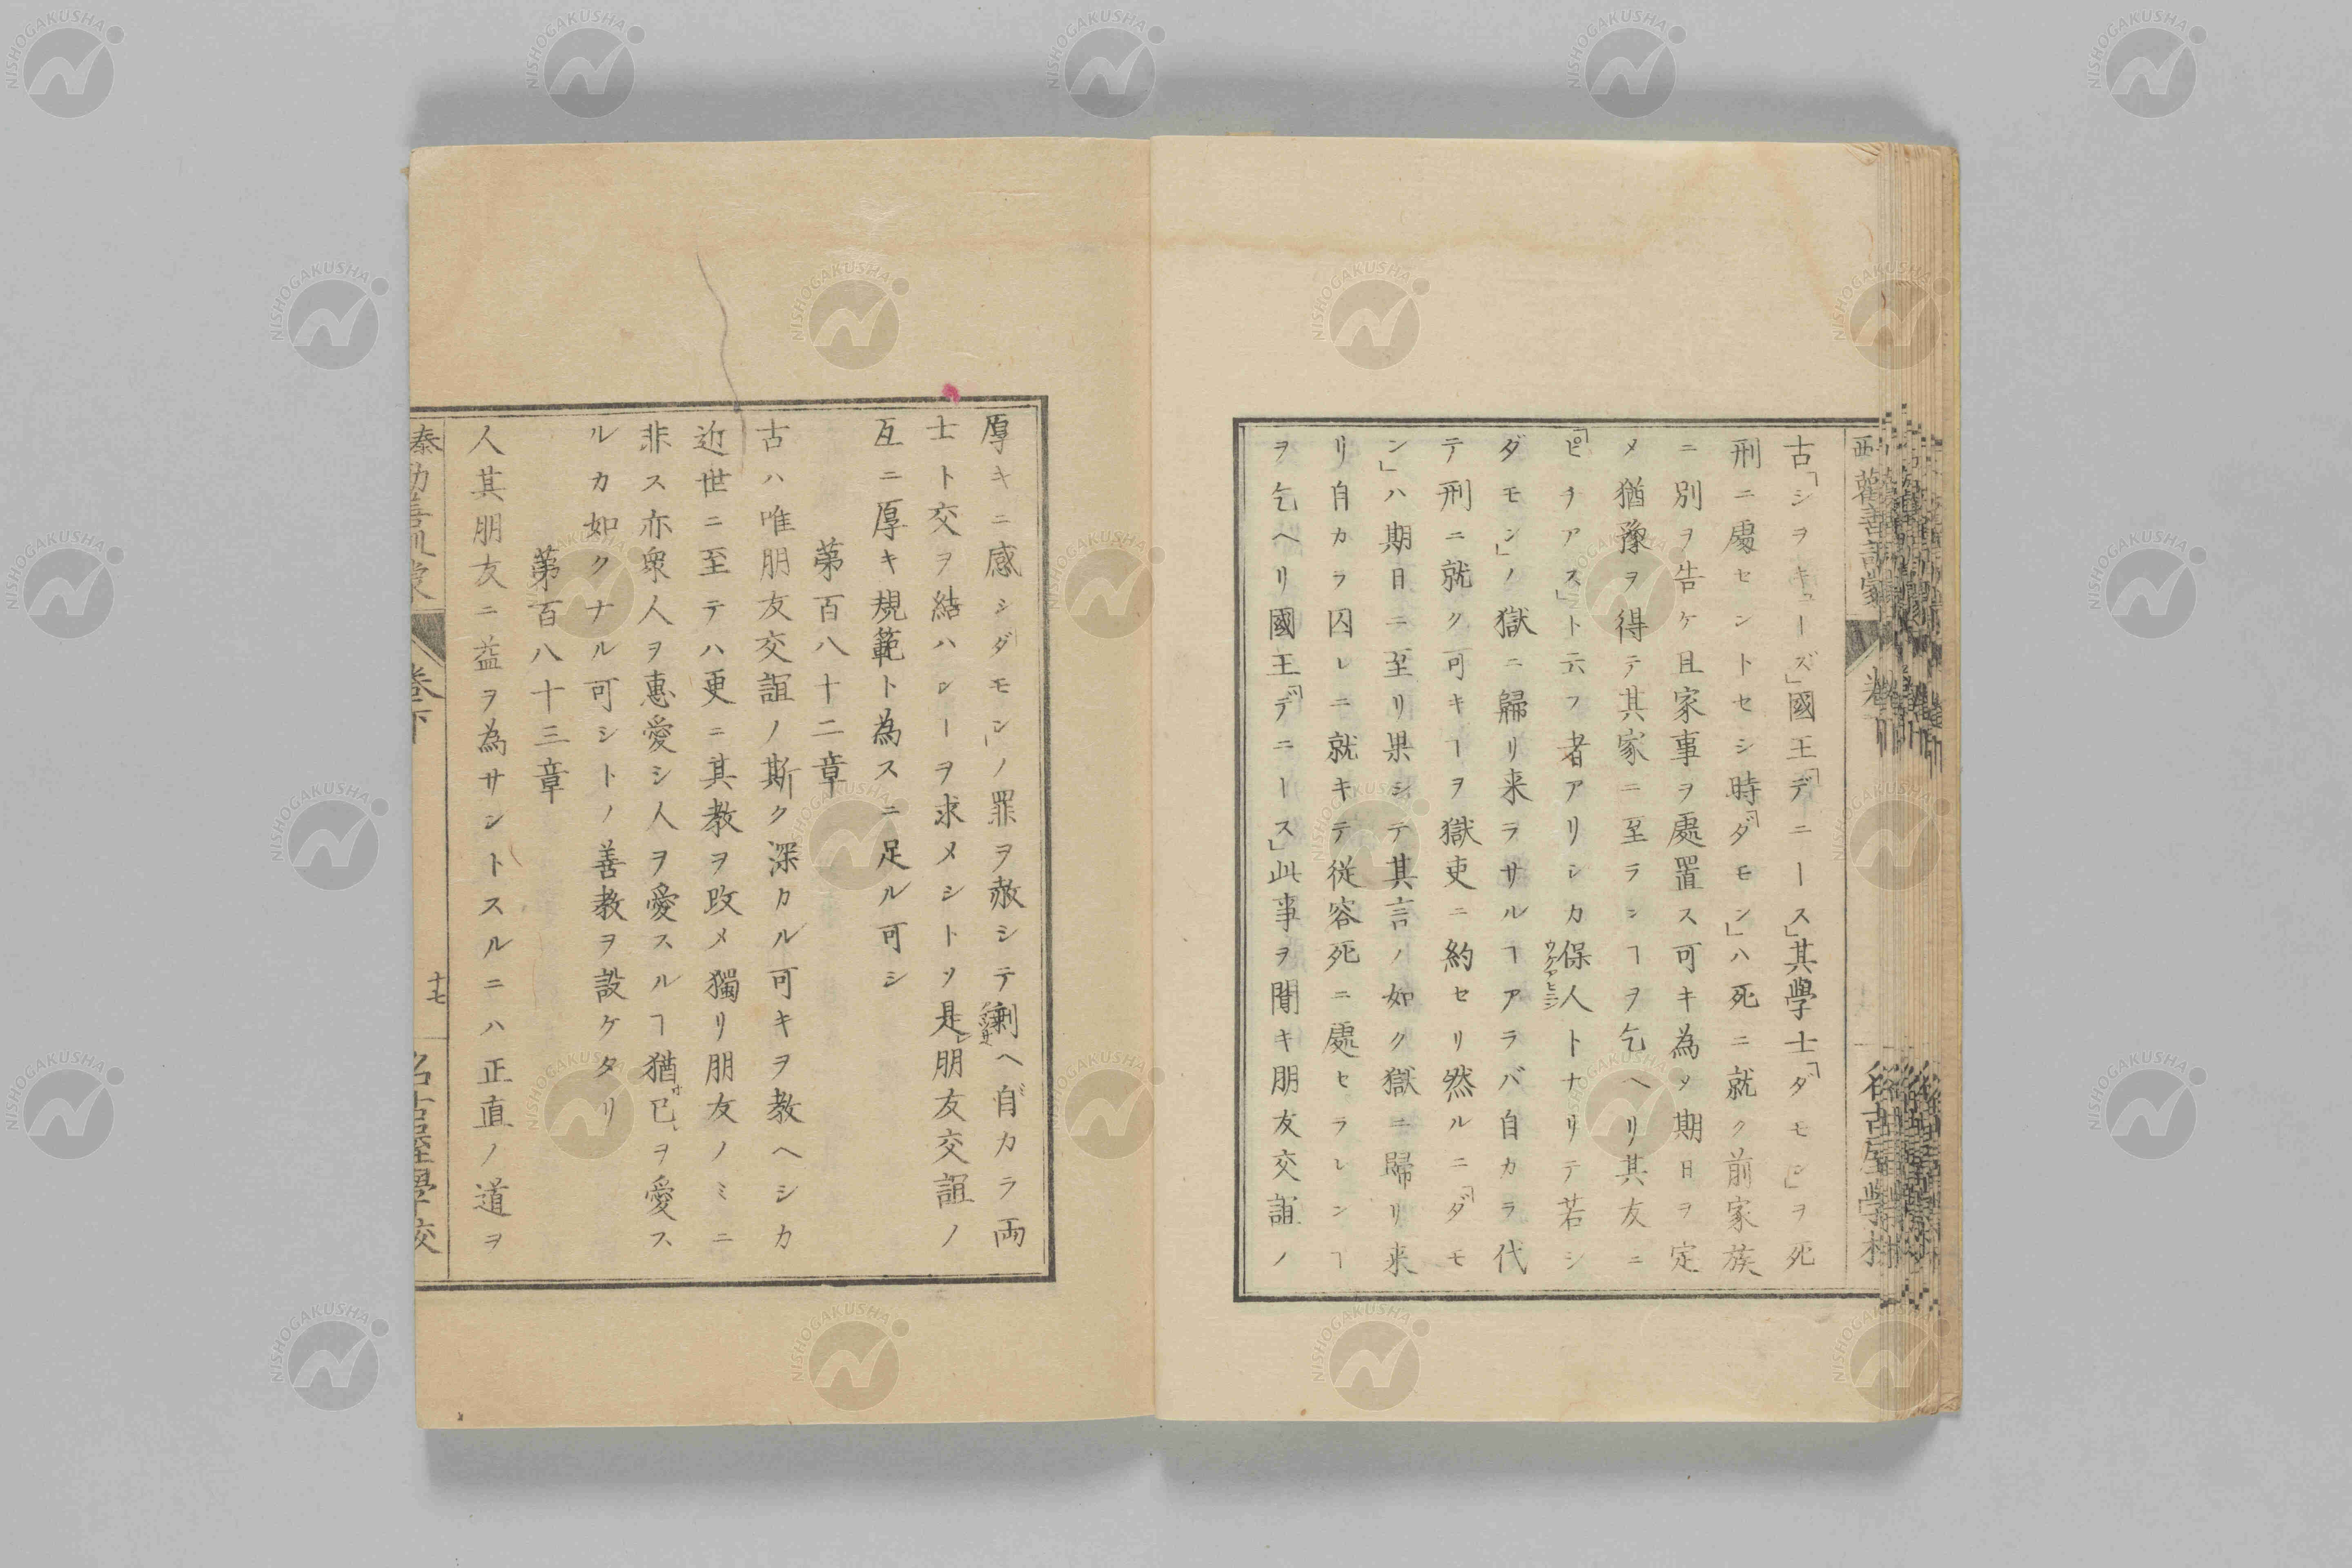 古「シヲキューズ」國王「デニース」其學士「ダモン」ヲ死
刑ニ處セントセシ時「ダモン」ハ死ニ就ク前家族
ニ別ヲ告ケ且家事ヲ處置ス可キ為メ期日ヲ定
メ猶豫ヲ得テ其家ニ至ランヿヲ乞ヘリ其友ニ
「ピチアス」ト云フ者アリシカ保人トナリテ若シ
ウケアヒニン
ダモン」ノ獄ニ歸リ来ラサルヿアラバ自カラ代
テ刑ニ就ク可キヿヲ獄吏ニ約セリ然ルニ「ダモ
ン」ハ期日ニ至リ果シテ其言ノ如ク獄ニ歸リ来
リ自カラ囚レニ就キテ従容死ニ處セラレンヿ
ヲ乞ヘリ國王「デニース」此事ヲ聞キ朋友交誼ノ
厚キニ感シダモン」ノ罪ヲ赦シテ剰ヘ自カラ両
士ト交ヲ結ハンヿヲ求メシトソ是レ朋友交誼ノ
互ニ厚キ規範ト為スニ足ル可シ
第百八十二章
古ハ唯朋友交誼ノ斯ク深カル可キヲ教ヘシカ
近世ニ至テハ更ニ其教ヲ改メ獨リ朋友ノミニ
非ス亦衆人ヲ惠愛シ人ヲ愛スルヿ猶已ヲ愛ス
ルカ如クナル可シトノ善教ヲ設ケタリ
第百八十三章
人其朋友ニ益ヲ為サントスルニハ正直ノ道ヲ
泰勸善訓蒙
巻下
十七
名古屋學校
NISHOGAKUSHA